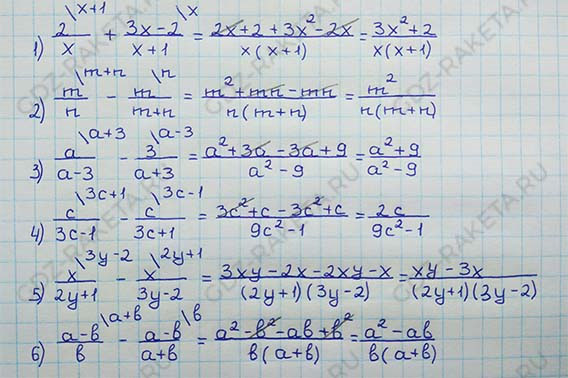 1) 2/x \x+1 + (3x-2)/(x+1) \x = (2x+2+3x²-2x)/(x(x+1)) = (3x²+2)/(x(x+1))
2) m/n \m+n - m/(m+n) \n = (m²+mn-mn)/(n(m+n)) = m²/(n(m+n))
3) a/(a-3) \a+3 - 3/(a+3) \a-3 = (a²+3a-3a+9)/(a²-9) = (a²+9)/(a²-9)
4) c/(3c-1) \3c+1 - c/(3c+1) \3c-1 = (3c²+c-3c²+c)/(9c²-1) = 2c/(9c²-1)
5) x/(2y+1) \3y-2 - x/(3y-2) \2y+1 = (3xy-2x-2xy-x)/((2y+1)(3y-2)) = (xy-3x)/((2y+1)(3y-2))
6) (a-b)/b \a+b - (a-b)/(a+b) \b = (a²-b²-ab+b²)/(b(a+b)) = (a²-ab)/(b(a+b))
GDZ-RAKETA.RU